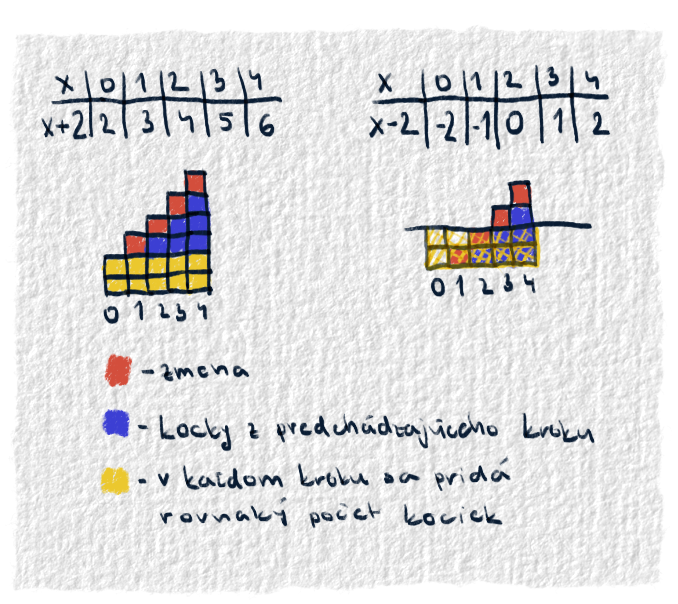 x 0 1 2 3 4
x+2 2 3 4 5 6
x 0 1 2 3 4
x-2 -2 -1 0 1 2
0 1 2 3 4
0 1 2 3 4
- zmena
- kocky z predchádzajúceho kroku
- v každom kroku sa pridá
rovnaký počet kociek